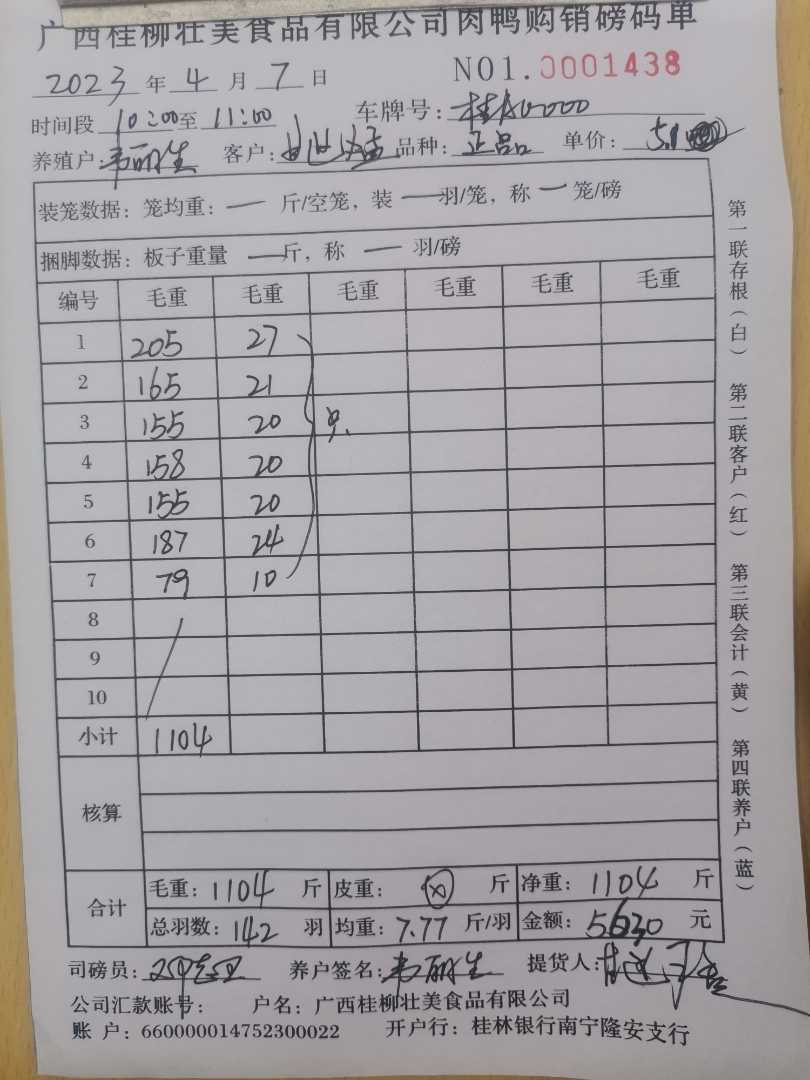 广西桂柳壮美食品有限公司肉鸭购销磅码单
2023 年 4 月 7 日 NO1.0001438
时间段 10:00 至 11:00 车牌号: 桂A00000
养殖户: 韦丽生 客户: 品种: 正品 单价: 5.1
装笼数据: 笼均重: — 斤/空笼, 装 — 羽/笼, 称 — 笼/磅
捆脚数据: 板子重量 — 斤, 称 — 羽/磅
编号 毛重 毛重 毛重 毛重 毛重 毛重
1 205 27
2 165 21
3 155 20
4 158 20
5 155 20
6 187 24
7 79 10
8
9
10
小计 1104
核算
合计 毛重: 1104 斤 皮重: 斤 净重: 1104 斤
总羽数: 142 羽 均重: 7.77 斤/羽 金额: 5630 元
司磅员: 养户签名: 韦丽生 提货人:
公司汇款账号: 户名: 广西桂柳壮美食品有限公司
账 户: 660000014752300022 开户行: 桂林银行南宁隆安支行
第一联存根(白) 第二联客户(红) 第三联会计(黄) 第四联养户(蓝)